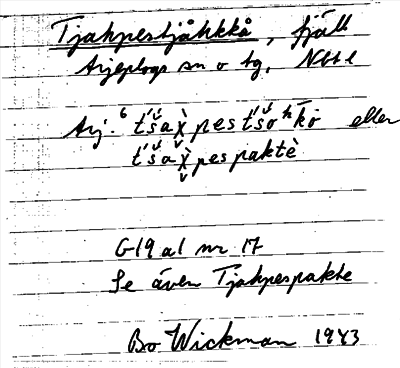 Tjakpestjåkkå, fjäll
Arjeplogs sn o tg, Nbt l
Arj. 6 t́šax̀pest́šoʰkò eller
t́šax̀pespaktè
G19 a1 nr 17
Se även Tjakpespakte
Bo Wickman 1943